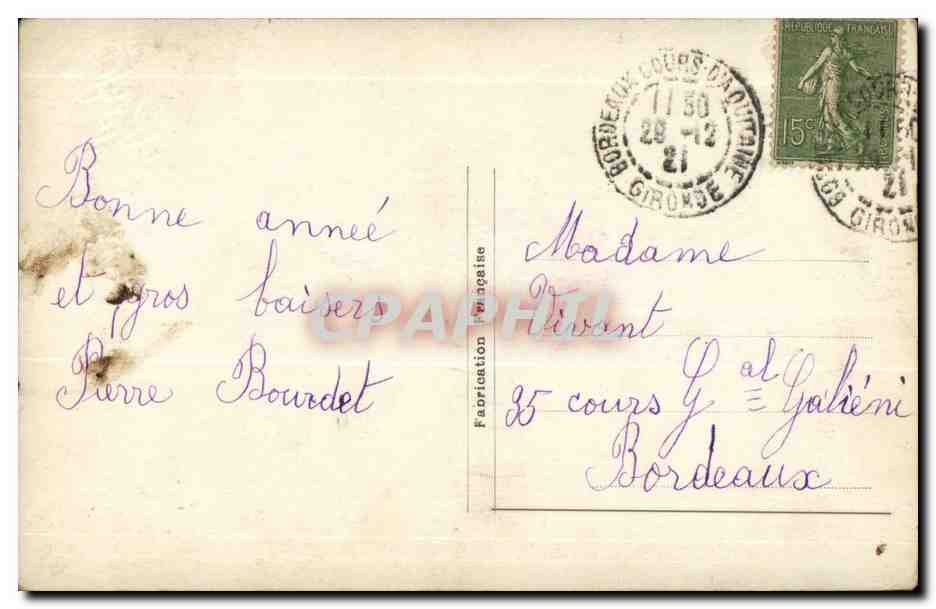 Bonne année
et gros baisers
Pierre Bourdet
Fabrication Française
BORDEAUX COURS D'AQUITAINE
11 30
28 -12
21
GIRONDE
RÉPUBLIQUE FRANÇAISE
15c
21
GIRONDE
Madame
Vivant
35 cours Gal Galiéni
Bordeaux
CPAPHIL